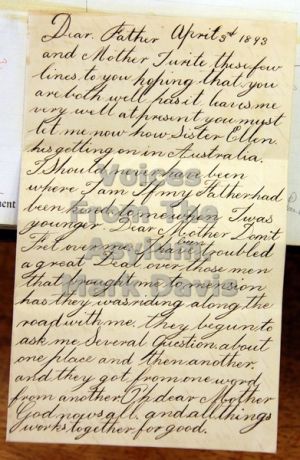 Dear. Father April 3d 1893
and Mother I write these few
lines to you hoping that you
are both well has it leaves me
very well at present you must
let me now how Sister Ellen.
his getting on in Australia.
I Should never have been
where I am if my Father had
been kind to me when I was
younger Dear Mother Don't
Fret over me I has been troubled
a great Deal over those men
that brought me to menson
has they was riding along the
road with me. they begun to
ask me Several Question about
one place and then another.
and they got from one word
from another Oh dear Mother
God nows all. and all things
works together for good.
Voices
From The
Asylum
Mark Davis
ment